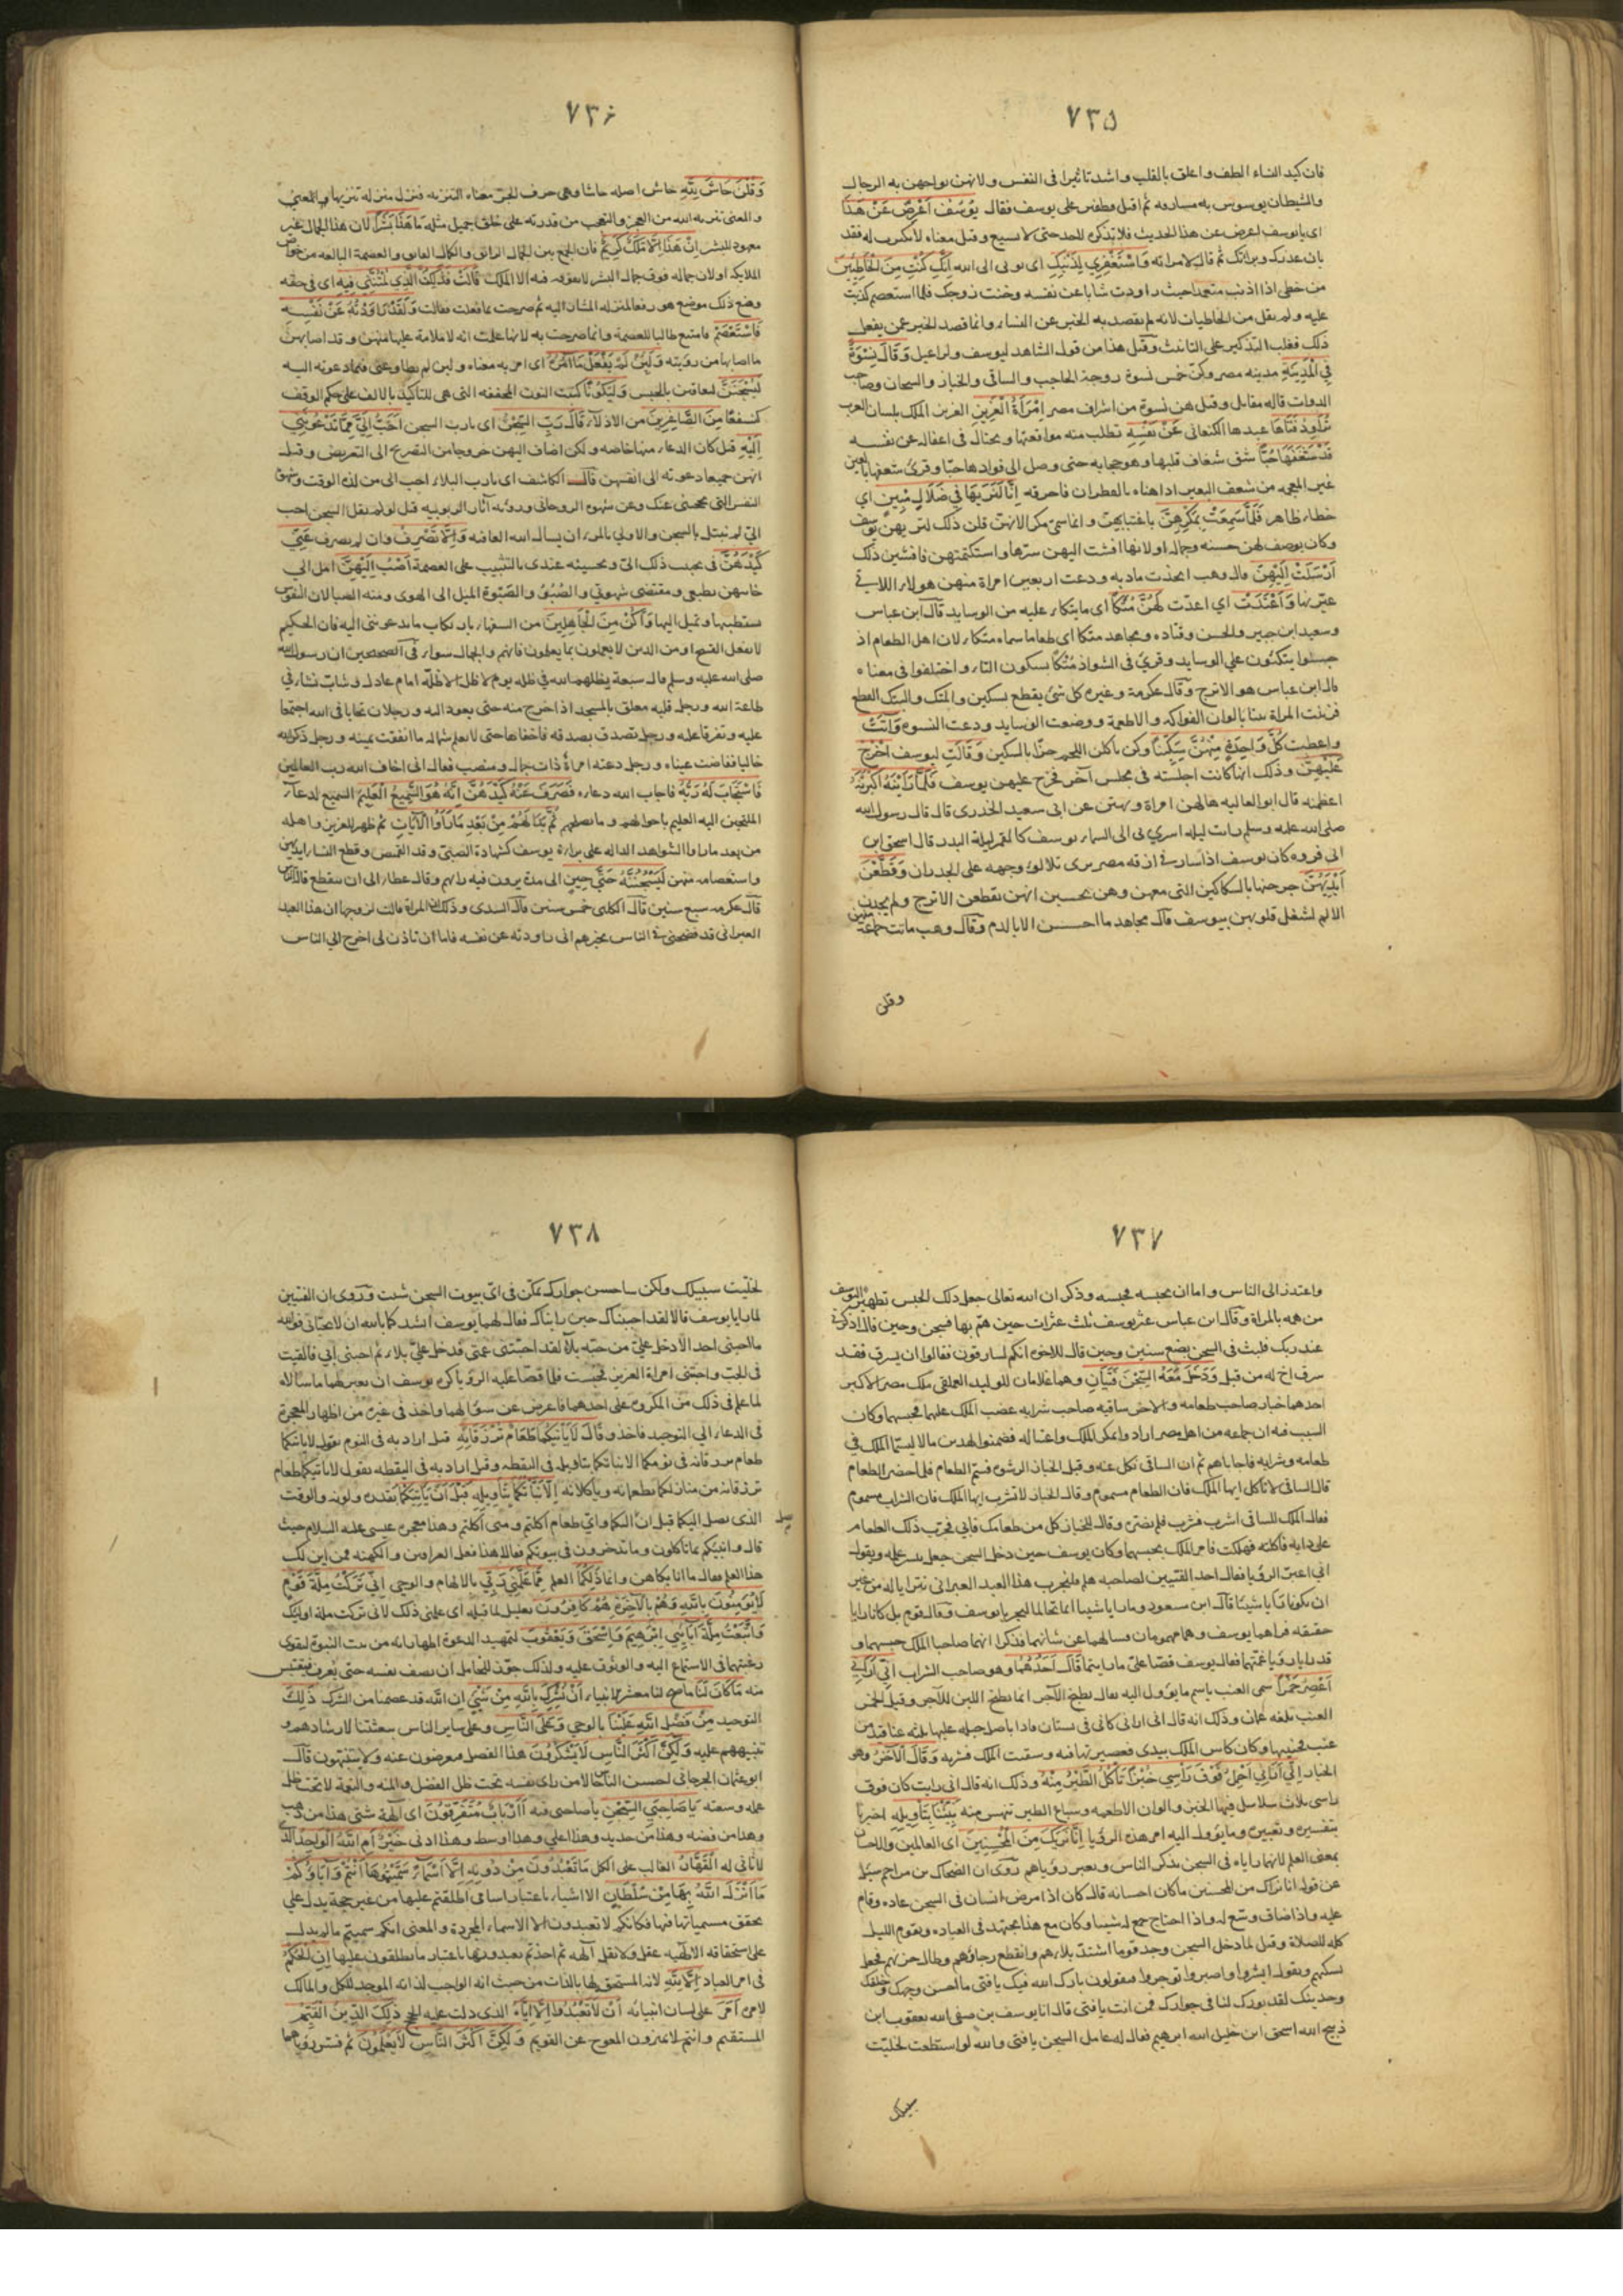 ٧٣٥
فان كيد النساء الطف واعلق بالقلب واشد تاثيرا فى النفس ولانهن يواجهن به الرجال
والشيطان يوسوس به مسارقه ثم اقبل قطفير على يوسف فقال يُوسُفُ أَعْرِضْ عَنْ هَذَا
اى يا يوسف اعرض عن هذا الحديث فلا تذكره للاحد حتى لا يسيع وقيل معناه لا تكترث له فقد
بان عذرك وبراتك ثم قال لامراته وَاسْتَغْفِرِي لِذَنْبِكِ اى توبى الى الله إِنَّكِ كُنْتِ مِنَ الْخَاطِئِينَ
من خطى اذا اذنب متعمدا حيث راودت شابا عن نفسه وخنت زوجك فلما استعصم كذبت
عليه ولم يقل من الخاطيات لانه لم يقصد به الخبر عن النساء وانما قصد الخبر عمن يفعل
ذلك فغلب التذكير على التانيث وقيل هذا من قول الشاهد ليوسف ولراعيل وَقَالَ نِسْوَةٌ
فِي الْمَدِينَةِ مدينه مصر وكن خمس نسوة زوجة الحاجب والساقى والخباز والسجان وصاحب
الدواب قاله مقاتل وقيل هن نسوة من اشراف مصر امْرَأَةُ الْعَزِيزِ العزيز الملك بلسان العرب
تُرَاوِدُ فَتَاهَا عبدها الكنعانى عَنْ نَفْسِهِ تطلب منه مواقعتها ويحتال فى اغفاله عن نفسه
قَدْ شَغَفَهَا حُبًّا شق شغاف قلبها وهو حجابه حتى وصل الى فوادها حبا وقرئ شعفها بالعين
غير المعجمه من شعف البعير اذا هناه بالقطران فاحرقه إِنَّا لَنَرَاهَا فِي ضَلَالٍ مُبِينٍ اى
خطاء ظاهر فَلَمَّا سَمِعَتْ بِمَكْرِهِنَّ باغتيابهن وانما سمى مكرا لانهن قلن ذلك لتريهن يوسف
وكان يوصف لهن حسنه وجماله او لانها افشت اليهن سرها واستكتمتهن فافشين ذلك
أَرْسَلَتْ إِلَيْهِنَّ قال وهب اتخذت مادبه ودعت اربعين امراة منهن هولاء اللاتى
عيرنها وَأَعْتَدَتْ اي اعدت لَهُنَّ مُتَّكَأً اى ما يتكاء عليه من الوسايد قال ابن عباس
وسعيد ابن جبير والحسن وقتاده ومجاهد متكا اى طعاما سماه متكاء لان اهل الطعام اذ
جلسوا يتكئون على الوسايد وقرئ فى الشواذ مُتْكًا بسكون التاء واختلفوا فى معناه
قال ابن عباس هو الاترج وقال عكرمة وغيره كل شئ يقطع بسكين والمتك والبتك القطع
فزينت المراة بيتا بالوان الفواكه والاطعمة ووضعت الوسايد ودعت النسوه وَآتَتْ
واعطت كُلَّ وَاحِدَةٍ مِنْهُنَّ سِكِّينًا وكن ياكلن اللحم حزا بالسكين وَقَالَتِ ليوسف اخْرُجْ
عَلَيْهِنَّ وذلك انها كانت اجلسته فى مجلس آخر فخرج عليهن يوسف فَلَمَّا رَأَيْنَهُ أَكْبَرْنَهُ
اعظمنه قال ابو العاليه هالهن امراة وبهتن عن ابى سعيد الخدرى قال قال رسول الله
صلى الله عليه وسلم رايت ليله اسري بى الى السماء يوسف كالقمر ليلة البدر قال اسحق ابن
ابى فروه كان يوسف اذا سار فى ازقه مصر يرى تلالؤ وجهه على الجدران وَقَطَّعْنَ
أَيْدِيَهُنَّ جرحنها بالسكاكين التى معهن وهن يحسبن انهن يقطعن الاترج ولم يجدن
الالم لشغل قلوبهن بيوسف قال مجاهد ما احسسن الا بالدم وقال وهب ماتت جماعة منهن
وقلن
٧٣٦
وَقُلْنَ حَاشَ لِلَّهِ حاش اصله حاشا وهى حرف الجر معناه التنزيه فنزل منزله تنزيها
والمعنى تنزيه الله من العجز والتعجب من قدرته على خلق جميل مثله مَا هَذَا بَشَرًا لان هذا الجمال غير
معهود للبشر إِنْ هَذَا إِلَّا مَلَكٌ كَرِيمٌ فان الجمع بين الجمال الرائق والكمال الفايق والعصمة البالغه من خواص
الملايكة او لان جماله فوق جمال البشر لا يفوقه فيه الا الملك قَالَتْ فَذَلِكُنَّ الَّذِي لُمْتُنَّنِي فِيهِ اى فى حقه
وضع ذلك موضع هو رفعا لمنزله المشار اليه ثم صرحت بما فعلت فقالت وَلَقَدْ رَاوَدْتُهُ عَنْ نَفْسِهِ
فَاسْتَعْصَمَ فامتنع طالبا للعصمة وانما صرحت به لانها علمت انه لا ملامة عليها منهن وقد اصابهن
ما اصابها من رويته وَلَئِنْ لَمْ يَفْعَلْ مَا آمُرُهُ اى امر به معناه ولين لم يطاوعنى فيما دعوته اليه
لَيُسْجَنَنَّ ليعاقبن بالحبس وَلَيَكُونًا كتبت النون المخففه التى هى للتاكيد بالالف على حكم الوقف
كنسفعا مِنَ الصَّاغِرِينَ من الاذلاء قَالَ رَبِّ السِّجْنُ اى يارب السجن أَحَبُّ إِلَيَّ مِمَّا يَدْعُونَنِي
إِلَيْهِ قيل كان الدعاء منها خاصه ولكن اضاف اليهن خروجا من التصريح الى التعريض وقيل
انهن جميعا دعونه الى انفسهن قال الكاشف اى يارب البلاء احب الى من لذه الوقت وشهوة
النفس التى تحجبنى عنك وعن شهود الروحانى وروية آثار الربوبيه قيل لو لم يقل السجن احب
الىّ لم يبتل بالسجن والاولى بالمرء ان يسال الله العافيه وَإِلَّا تَصْرِفْ وان لم يصرف عَنِّي
كَيْدَهُنَّ فى تحبيب ذلك الىّ وتحسينه عندى بالتثبيت على العصمة أَصْبُ إِلَيْهِنَّ امل الى
جانبهن بطبعى ومقتضى شهوتي والصُبُوّ والصّبْوة الميل الى الهوى ومنه الصبا لان النفوس
تستطيبها وتميل اليها وَأَكُنْ مِنَ الْجَاهِلِينَ من السفهاء بارتكاب ما يدعوننى اليه فان الحكيم
لا يفعل القبيح او من الذين لا يعملون بما يعلمون فانهم والجهال سواء فى الصحيحين ان رسول الله
صلى الله عليه وسلم قال سبعة يظلهم الله فى ظله يوم لا ظل الا ظله امام عادل وشاب نشا فى
طاعة الله ورجل قلبه معلق بالمسجد اذا خرج منه حتى يعود اليه ورجلان تحابا فى الله اجتمعا
عليه وتفرقا عليه ورجل تصدق بصدقه فاخفاها حتى لا يعلم شماله ما انفقت يمينه ورجل ذكر الله
خاليا ففاضت عيناه ورجل دعته امرأة ذات جمال ومنصب فقال انى اخاف الله رب العالمين
فَاسْتَجَابَ لَهُ رَبُّهُ فاجاب الله دعاءه فَصَرَفَ عَنْهُ كَيْدَهُنَّ إِنَّهُ هُوَ السَّمِيعُ الْعَلِيمُ السميع لدعاء
الملتجين اليه العليم باحوالهم وما يصلحهم ثُمَّ بَدَا لَهُمْ مِنْ بَعْدِ مَا رَأَوُا الْآيَاتِ ثم ظهر للعزيز واهله
من بعد ما راوا الشواهد الداله على براءة يوسف كشهادة الصبىّ وقد القميص وقطع النساء ايديهن
واستعصامه منهن لَيَسْجُنُنَّهُ حَتَّى حِينٍ الى مدة يرون فيه رايهم وقال عطاء الى ان ينقطع قالة الناس
قال عكرمه سبع سنين قال الكلبى خمس سنين قال السدى وذلك ان المراة قالت لزوجها ان هذا العبد
العبرانى قد فضحنى فى الناس يخبرهم انى راودته عن نفسه فاما ان تاذن لى اخرج الى الناس
٧٣٧
واعتذر الى الناس واما ان تحبسه فحبسه وذكر ان الله تعالى جعل ذلك الحبس تطهيرا ليوسف
من همه بالمراة وقال ابن عباس عثر يوسف ثلث عثرات حين هم بها فسجن وحين قال اذكرنى
عند ربك فلبث فى السجن بضع سنين وحين قال للاخوه انكم لسارقون فقالوا ان يسرق فقد
سرق اخ له من قبل وَدَخَلَ مَعَهُ السِّجْنَ فَتَيَانِ وهما غلامان للوليد العملقى ملك مصر الاكبر
احدهما خباز صاحب طعامه والاخر ساقيه صاحب شرابه غضب الملك عليهما فحبسهما وكان
السبب فيه ان جماعه من اهل مصر ارادوا مكر الملك واغتياله فضمنوا لهذين مالا ليسمّا الملك فى
طعامه وشرابه فاجاباهم ثم ان الساقى نكل عنه وقبل الخباز الرشوة فسم الطعام فلما احضر الطعام
قال الساقى لا تاكل ايها الملك فان الطعام مسموم وقال الخباز لا تشرب ايها الملك فان الشراب مسموم
فقال الملك للساقى اشرب فشرب فلم يضره وقال للخباز كل من طعامك فابى فجرب ذلك الطعام
على دابه فاكلته فهلكت فامر الملك بحبسهما وكان يوسف حين دخل السجن جعل ينشر علمه ويقول
انى اعبر الرؤيا فقال احد الفتيين لصاحبه هلم فلنجرب هذا العبد العبرانى نترايا له من غير
ان نكونا رايا شيئا قال ابن مسعود ما رايا شيئا انما تحالما ليجربا يوسف وقال قوم بل كانا رايا
حقيقه فراهما يوسف وهما مهمومان فسالهما عن شانهما فذكرا انهما صاحبا الملك حبسهما و
قد رايا رؤيا غمتهما فقال يوسف قصا علىّ ما رايتما قَالَ أَحَدُهُمَا وهو صاحب الشراب إِنِّي أَرَانِي
أَعْصِرُ خَمْرًا سمى العنب باسم ما يؤول اليه يقال يطبخ الآجر انما يطبخ اللبن للآجر وقيل الخمر
العنب بلغه عمان وذلك انه قال انى ارانى كانى فى بستان فاذا باصل حبله عليها ثلثه عناقيد من
عنب فجنيتها وكان كاس الملك بيدى فعصرتها فيه وسقيت الملك فشربه وَقَالَ الْآخَرُ وهو
الخباز إِنِّي أَرَانِي أَحْمِلُ فَوْقَ رَأْسِي خُبْزًا تَأْكُلُ الطَّيْرُ مِنْهُ وذلك انه قال انى رايت كان فوق
راسى ثلاث سلاسل فيها الخبز والوان الاطعمه وسباع الطير تنهس منه نَبِّئْنَا بِتَأْوِيلِهِ اخبرنا
بتفسيره وتعبيره وما يؤول اليه امر هذه الرؤيا إِنَّا نَرَاكَ مِنَ الْمُحْسِنِينَ اى العالمين والاحسان
بمعنى العلم لانهما راياه فى السجن يذكر الناس ويعبر رؤياهم روى ان الضحاك بن مزاحم سئل
عن قوله انا نراك من المحسنين ما كان احسانه قال كان اذا مرض انسان فى السجن عاده وقام
عليه واذا ضاق وسّع له واذا احتاج جمع له شيئا وكان مع هذا يجتهد فى العباده ويقوم الليل
كله للصلاة وقيل لما دخل السجن وجد قوما اشتد بلاءهم وانقطع رجاؤهم وطال حزنهم فجعل
يسكنهم ويقول ابشروا واصبروا توجروا فيقولون بارك الله فيك يا فتى ما احسن وجهك وخلقك
وحديثك لقد بورك لنا فى جوارك فمن انت يا فتى قال انا يوسف بن صفى الله يعقوب ابن
ذبيح الله اسحق ابن خليل الله ابرهيم فقال له عامل السجن يا فتى والله لو استطعت لخليت
سبيلك
٧٣٨
لخليت سبيلك ولكن ساحسن جوارك تمكن فى اىّ بيوت السجن شئت وَرُوى ان الفتيين
لما رايا يوسف قالا لقد احببناك حين رايناك فقال لهما يوسف انشدكما بالله ان لا تحبانى فوالله
ما احبنى احد الا دخل علىّ من حبه بلاء لقد احبتنى عمتى فدخل علىّ بلاء ثم احبنى ابى فالقيت
فى الجب واحبتنى امراة العزيز فحبست فلما قصا عليه الرؤيا كره يوسف ان يعبر لهما ما سالاه
لما علم فى ذلك من المكروه على احدهما فاعرض عن سؤالهما واخذ فى غيره من اظهار المعجزة
فى الدعاء الى التوحيد فاخذ وقَالَ لَا يَأْتِيكُمَا طَعَامٌ تُرْزَقَانِهِ قيل اراد به فى النوم يقول لا ياتيكما
طعام ترزقانه فى نومكما الا نباتكما بتاويله فى اليقظه وقيل اراد به فى اليقظه يقول لا ياتيكما طعام
ترزقانه من منازلكما تطعمانه وتأكلانه إِلَّا نَبَّأْتُكُمَا بِتَأْوِيلِهِ قَبْلَ أَنْ يَأْتِيَكُمَا بقدره ولونه والوقت
الذى يصل اليكما قبل ان اليكما واىّ طعام اكلتم ومتى اكلتم وهذا معجزه عيسى عليه السلام حيث
قال وانبئكم بما تاكلون وما تدخرون فى بيوتكم فقالا هذا فعل العرافين والكهنه فمن اين لك
هذا العلم فقال ما انا بكاهن وانما ذَلِكُمَا العلم مِمَّا عَلَّمَنِي رَبِّي بالالهام والوحى إِنِّي تَرَكْتُ مِلَّةَ قَوْمٍ
لَا يُؤْمِنُونَ بِاللَّهِ وَهُمْ بِالْآخِرَةِ هُمْ كَافِرُونَ تعليل لما قبله اى علمنى ذلك لانى تركت ملة اوليك
وَاتَّبَعْتُ مِلَّةَ آبَائِي إِبْرَهِيمَ وَإِسْحَقَ وَيَعْقُوبَ لتمهيد الدعوة اظهار انه من بيت النبوة ليقوى
رغبتهما فى الاستماع اليه والوثوق عليه ولذلك جوّز للخامل ان يصف نفسه حتى يُعرف فيقتبس
منه مَا كَانَ لَنَا ما صح لنا معشر الانبياء أَنْ نُشْرِكَ بِاللَّهِ مِنْ شَيْءٍ ان الله قد عصمنا من الشرك ذَلِكَ
التوحيد مِنْ فَضْلِ اللَّهِ عَلَيْنَا بالوحي وَعَلَى النَّاسِ وعلى ساير الناس ببعثتنا لارشادهم و
تنبيههم عليه وَلَكِنَّ أَكْثَرَ النَّاسِ لَا يَشْكُرُونَ هذا الفضل معرضون عنه ولا ينتبهون قال
ابو عثمان الجرجانى احسن الناس حالا من راى نفسه تحت ظل الفضل والمنه والنعمة لا تحت ظل
عمله وسعيه يَا صَاحِبَيِ السِّجْنِ يا صاحبى فيه أَأَرْبَابٌ مُتَفَرِّقُونَ اى آلهة شتى هذا من ذهب
وهذا من فضه وهذا من حديد وهذا اعلى وهذا اوسط وهذا ادنى خَيْرٌ أَمِ اللَّهُ الْوَاحِدُ الذى
لا ثانى له الْقَهَّارُ الغالب على الكل مَا تَعْبُدُونَ مِنْ دُونِهِ إِلَّا أَسْمَاءً سَمَّيْتُمُوهَا أَنْتُمْ وَآبَاؤُكُمْ
مَا أَنْزَلَ اللَّهُ بِهَا مِنْ سُلْطَانٍ الا اشياء باعتبار اسامى اطلقتم عليها من غير حجة يدل على
تحقق مسمياتها فيها فكانكم لا تعبدون الا الاسماء المجردة والمعنى انكم سميتم ما لم يدل
على استحقاقه الالهيه عقل ولا نقل آلهه ثم اخذتم تعبدونها باعتبار ما تطلقون عليها إِنِ الْحُكْمُ
فى امر العباد إِلَّا لِلَّهِ لانه المستحق لها بالذات من حيث انه الواجب لذاته الموجد للكل والمالك
لامره أَمَرَ على لسان انبيائه أَنْ لَا تَعْبُدُوا إِلَّا إِيَّاهُ الذى دلت عليه الحجج ذَلِكَ الدِّينُ الْقَيِّمُ
المستقيم وانتم لا تميزون المعوج عن القويم وَلَكِنَّ أَكْثَرَ النَّاسِ لَا يَعْلَمُونَ ثم فسر رؤياهما